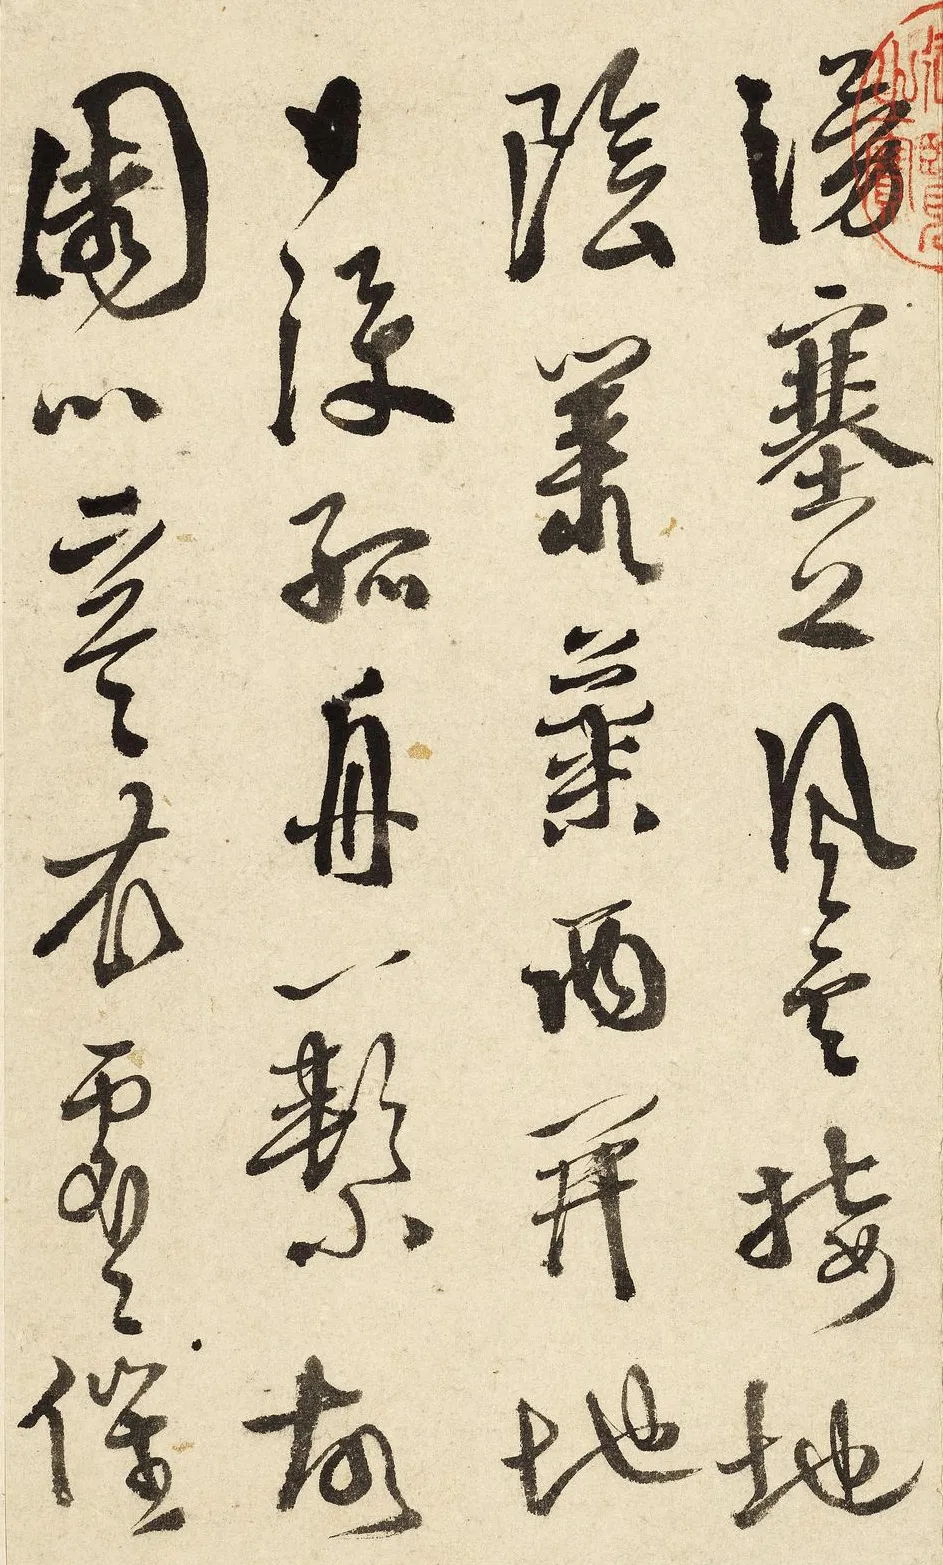 湧塞上風雲接地
陰叢菊兩開地
日淚孤舟一繫故
園心寒衣處々催